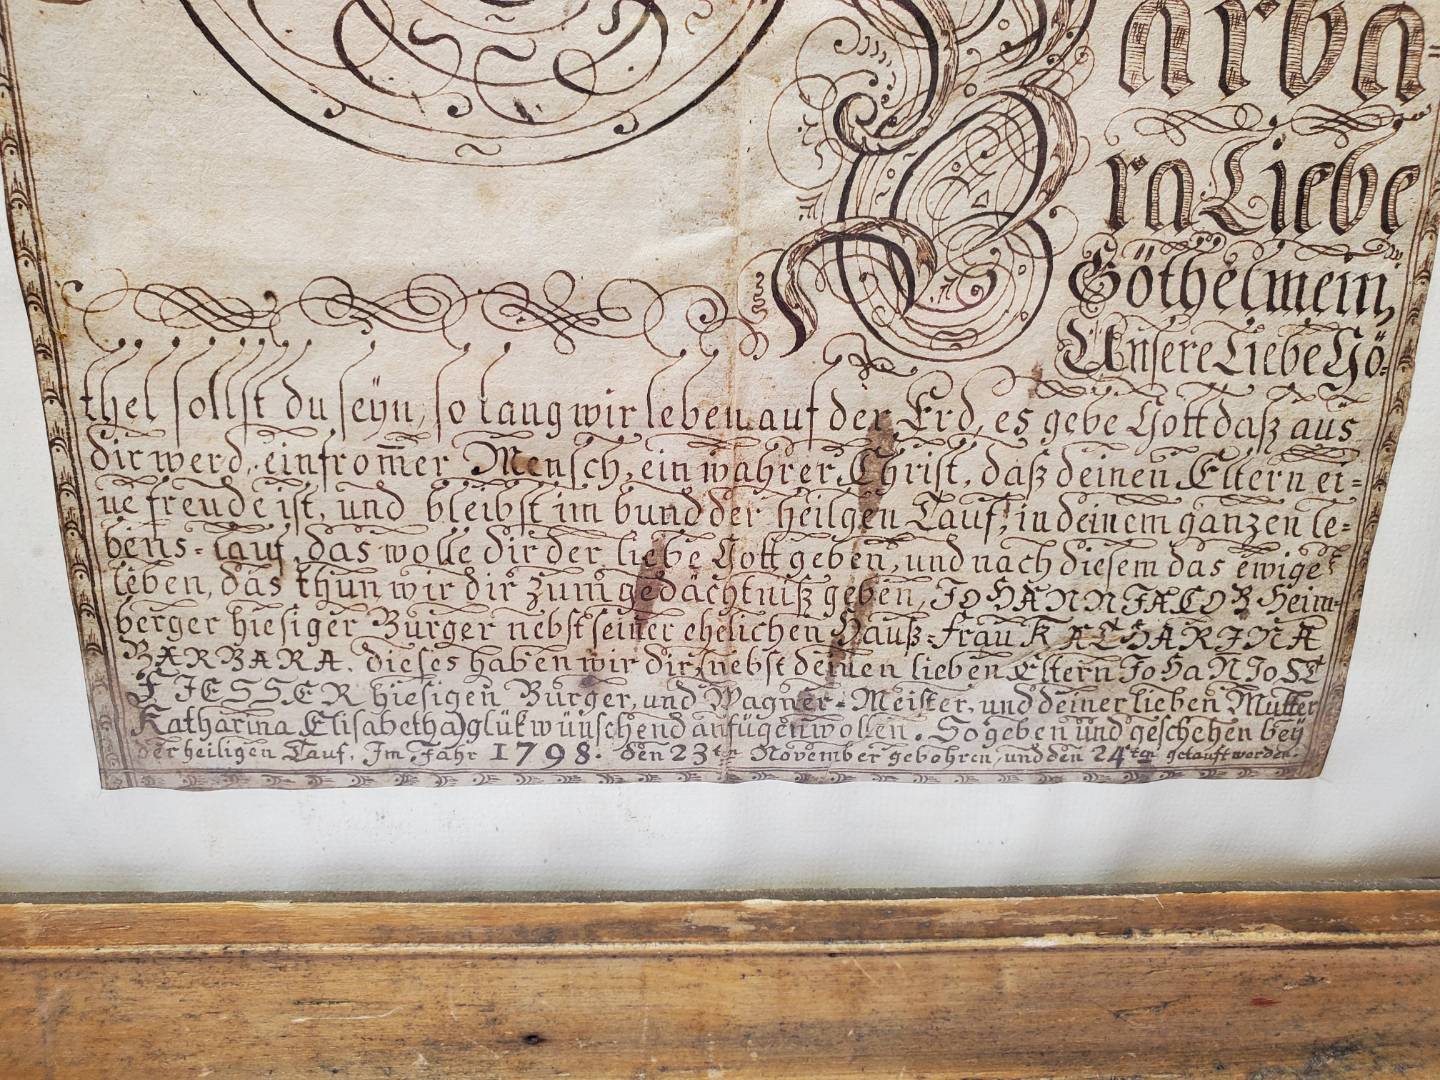 Barba=
ra Liebe
Göthel mein,
Unsere Liebe Gö=
thel sollst du seÿn, so lang wir leben auf der Erd, es gebe Gott daß aus
dir werd, ein from̅er Mensch, ein wahrer Christ, daß deinen Eltern ei=
ne freude ist, und bleibst im bund der heilgen Tauf, in deinem ganzen le=
bens=lauf, das wolle dir der liebe Gott geben, und nach diesem das ewige
leben, das thun wir dir zum gedächtniß geben, JOHANN JACOB Heim=
berger hiesiger Burger nebst seiner ehelichen Hauß=frau KATHARINA
BARBARA. dieses haben wir dir (nebst deinen lieben Eltern JOHANJOST
FIESSER hiesigen Burger, und Wagner=Meister, und deiner lieben Mutter
Katharina Elisabetha) glükwünschend anfügen wollen. So geben und geschehen beÿ
der heiligen Tauf. Im Jahr 1798. den 23ten November gebohren, und den 24ten getauft worden.